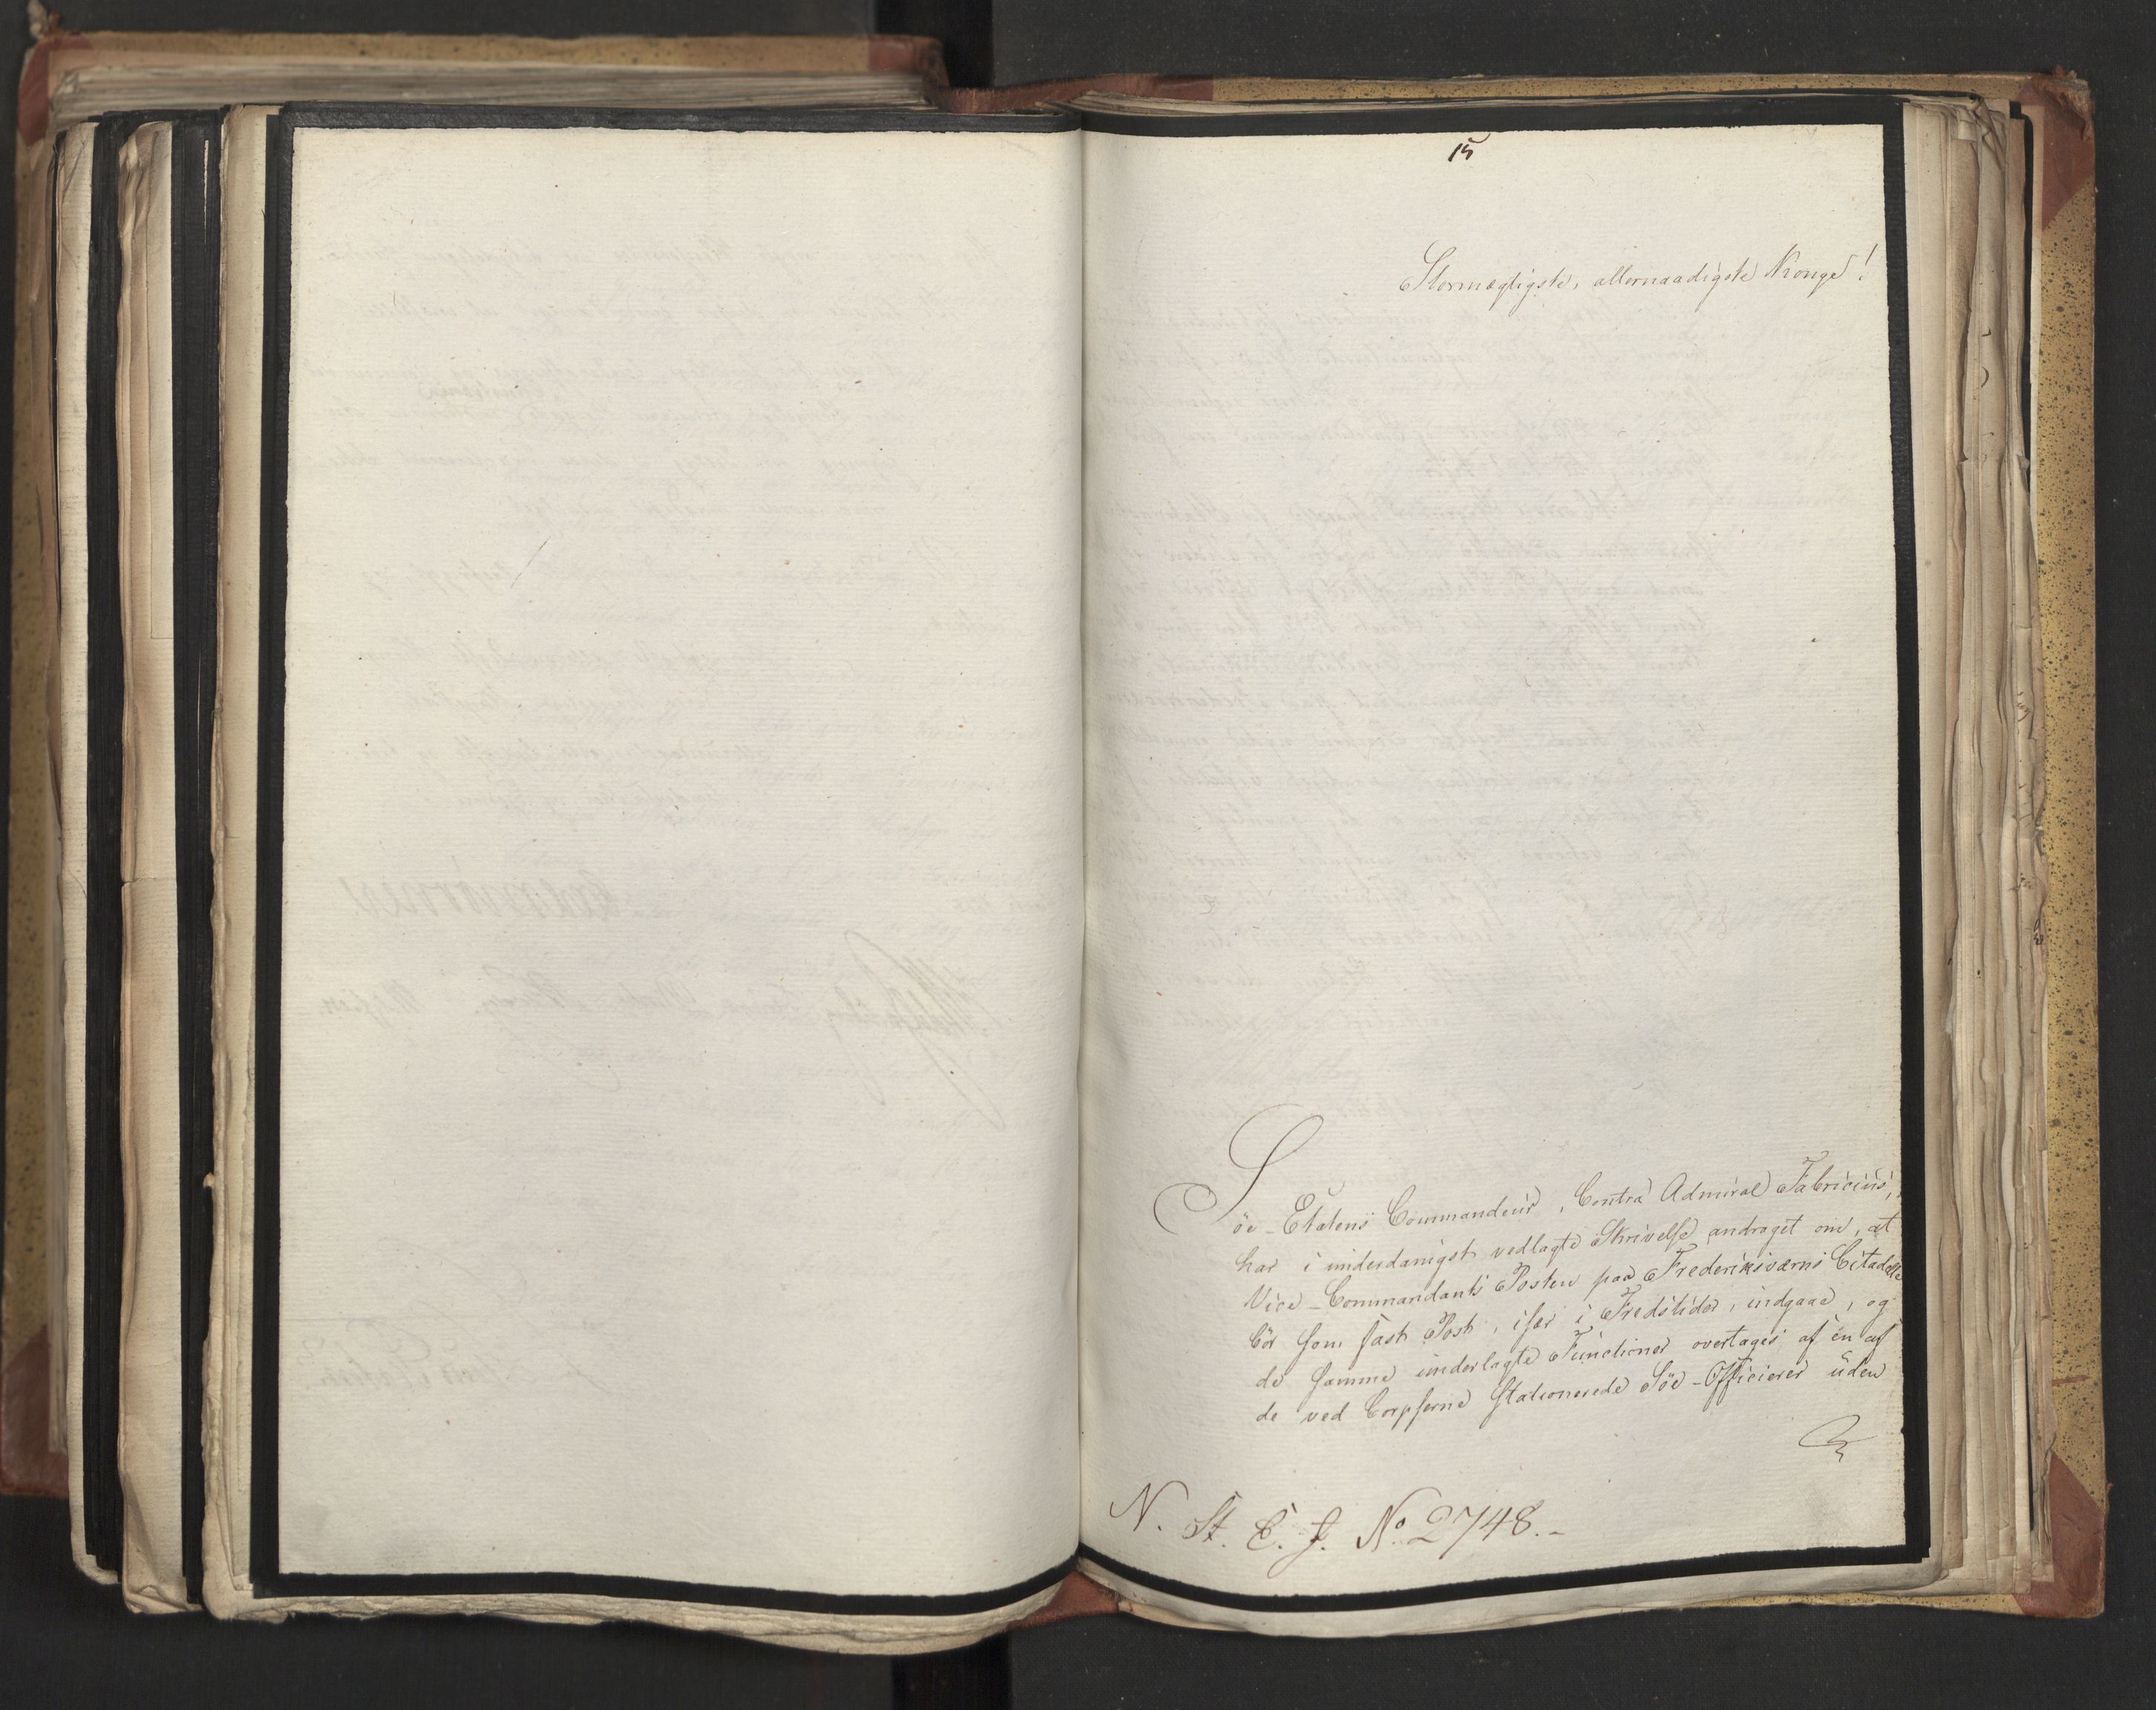 15
Stormægtigste, allernaadigste Konge!
Söe-Etatens Commandeur, Contra Admiral Fabricius,
har i underdanigst vedlagte Skrivelse andraget om, at
Vice-Commandants Posten paa Frederiksværns Citadelle
bör som fast Post, især i Fredstider, indgaae, og
de samme underlagte Functioner overtages af én af
de ved Corpserne stationerede Söe-Officierer uden
N. St. C. J. No 2748.-